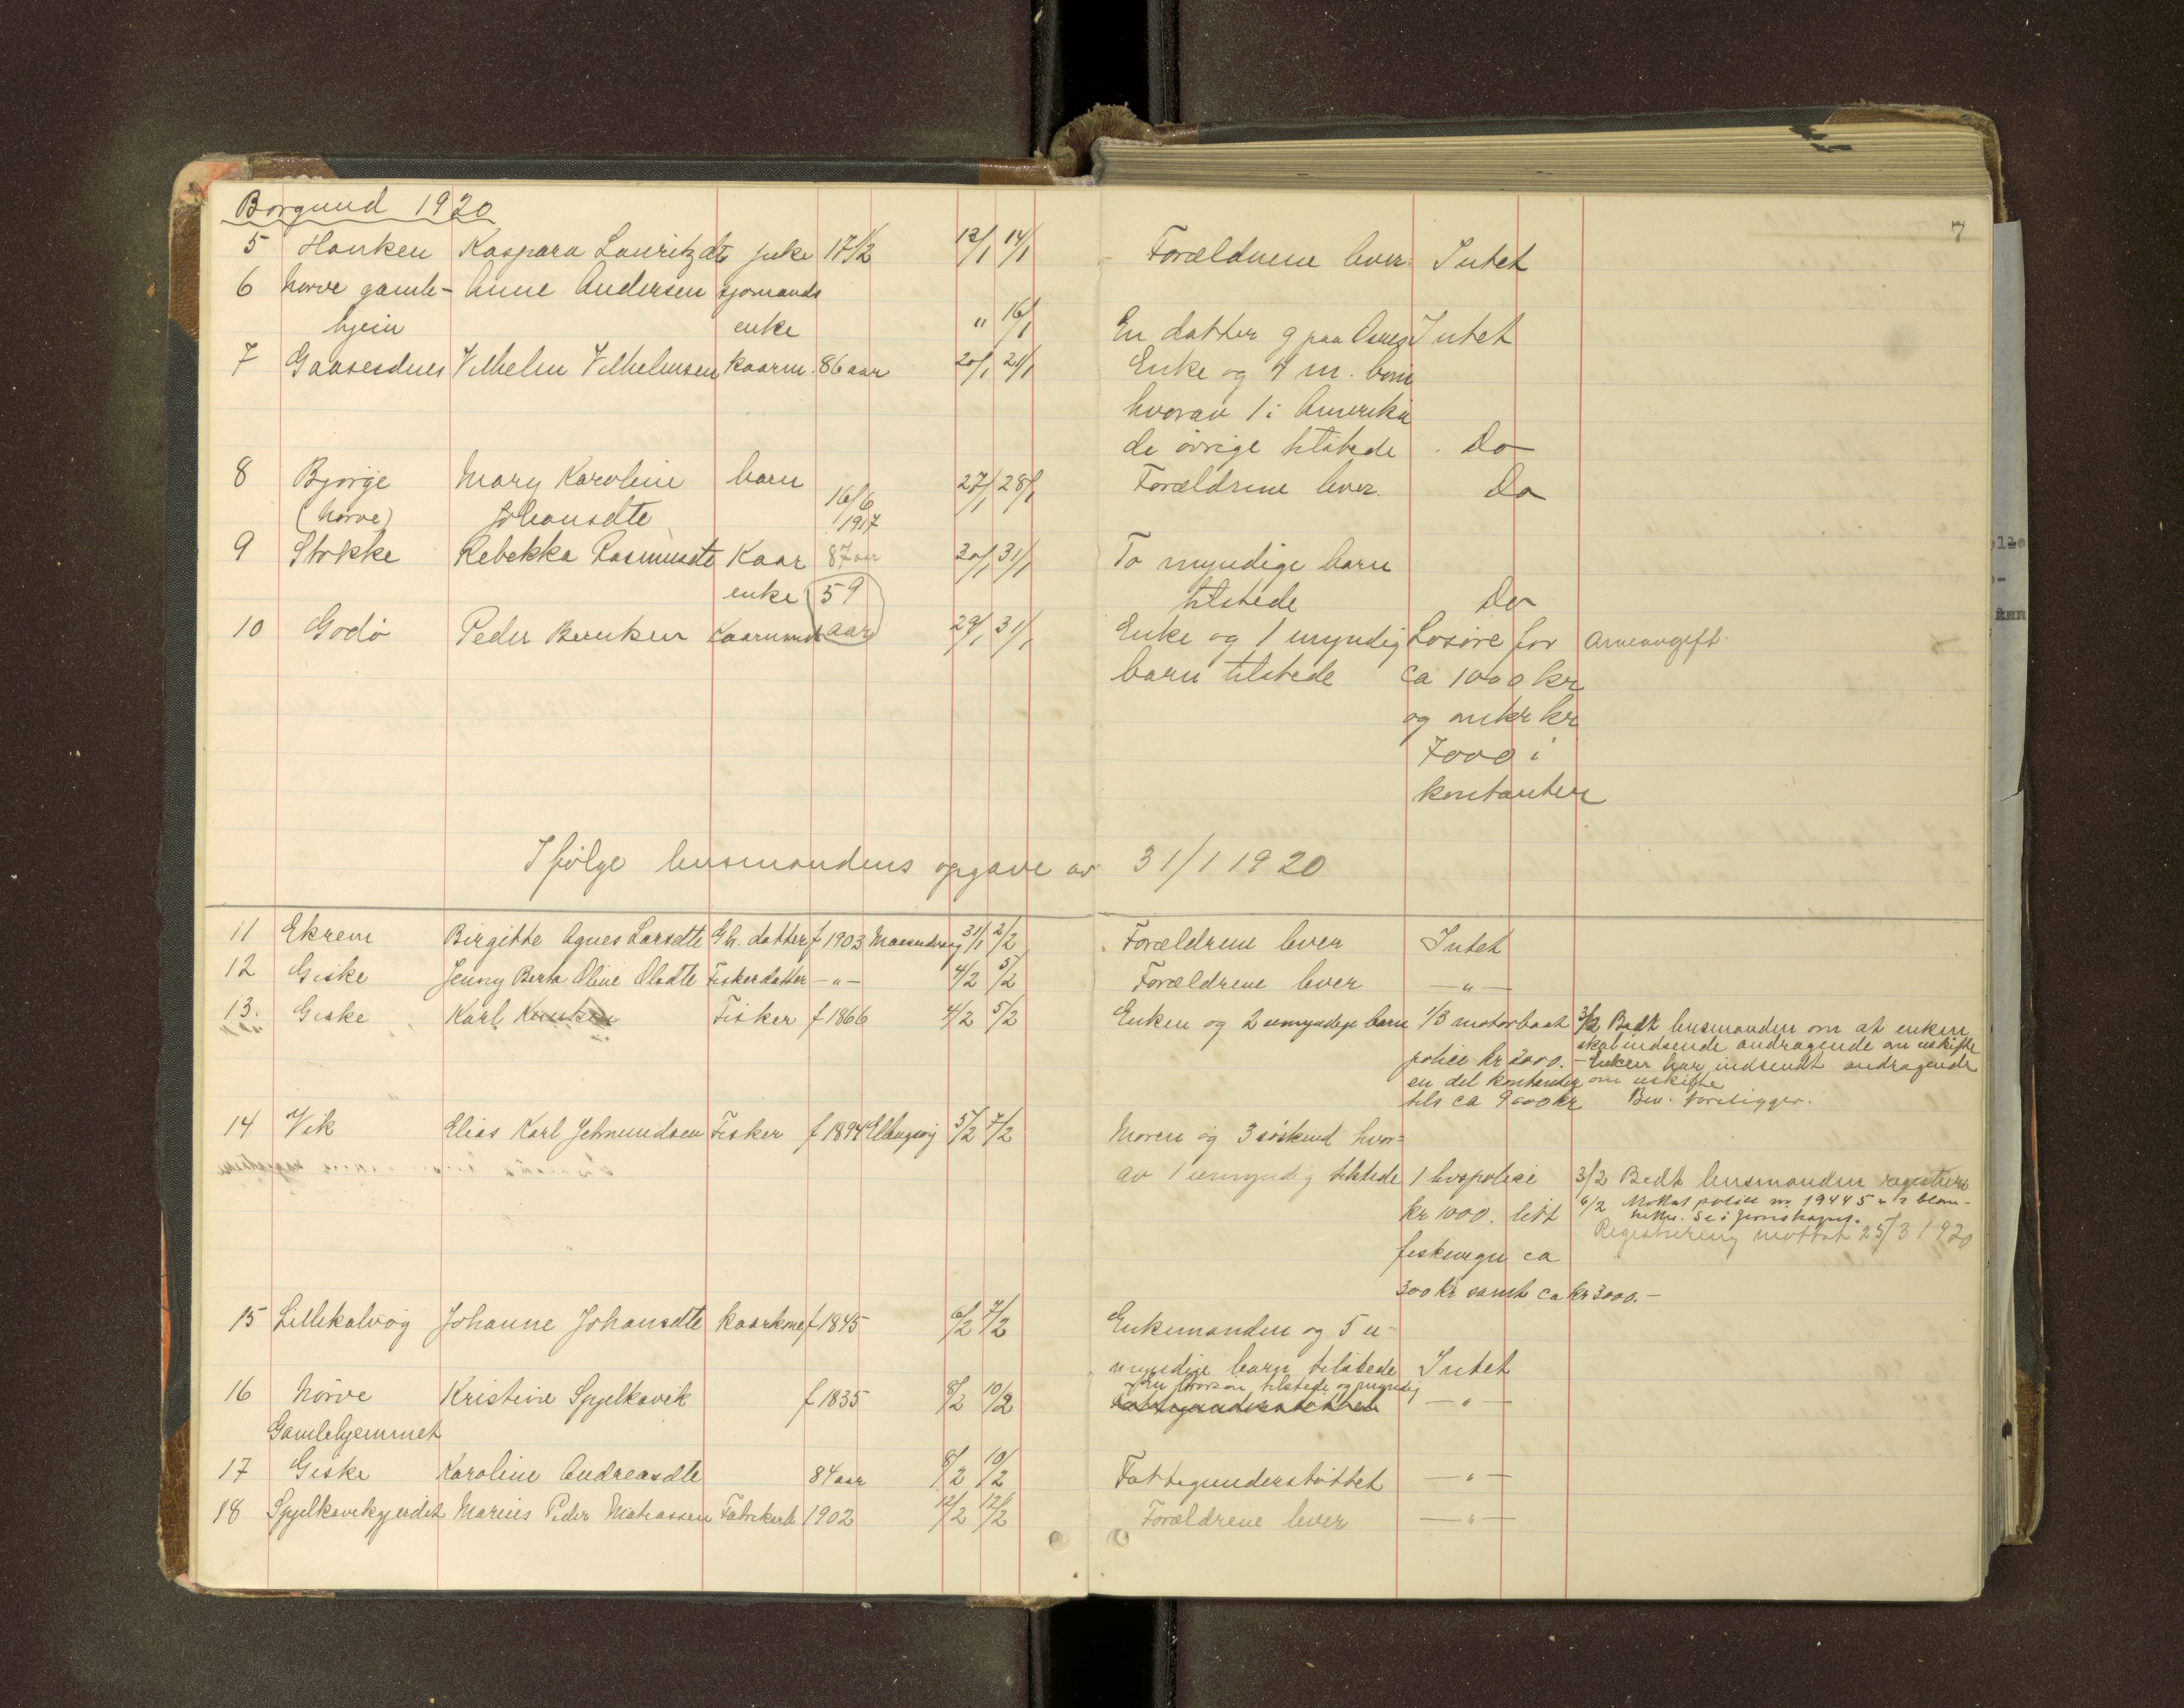 Borgund 1920
7
5 Hanken Kaspara Lauritzdt pike 17 1/2 12/1 14/1 Forældrene lever. Intet
6 Nørve gamle- Anne Andersen sjømands
hjem enke " 16/1 En datter g paa Axnes Intet
7 Gaasesdnes Vilhelm Vilhelmsen kaarm. 86 aar 20/1 21/1 Enke og 4 m. barn
hvorav 1 i Amerika
de øvrige tilstede . Do
8 Bjørge Mary Karoline barn 16/6 27/1 28/1 Forældrene lever. Do
(Nørve) Johansdte 1917
9 Stokke Rebekka Rasmusdte Kaar 87 aar 20/1 31/1 To myndige barn
enke tilstede Do
10 Godø Peder Bernksen Kaarmand 59 aar 29/1 31/1 Enke og 1 myndig Løsøre for Arveavgift.
barn tilstede ca 1000 kr
og omkr kr
7000 i
kontanter
Ifølge lensmandens opgave av 31/1 1920
11 Ekrem Birgitte Agnes Larsdte Gb. datter f 1903 31/1 2/2 Forældrene lever Intet
12 Giske Jenny Berta Oline Olsdte Fiskerdatter - " - 4/2 5/2 Forældrene lever - " -
13. Giske Karl Knutsen Fisker f 1866 4/2 5/2 Enken og 2 umyndige barn 1/3 motorbaat 3/2 Bedt lensmanden om at enken
skal indsende andragende om uskifte
police kr 2000. - Enken har indsendt andragende
en del kontanter om uskifte
tils ca 9000 kr Bev. foreligger.
14 Vik Elias Karl Jetmundsen Fisker f 1894 Ellingsøy 5/2 7/2 Moren og 3 søskend hvor=
av 1 umyndig tilstede 1 livspolice 3/2 Bedt lensmanden registrere
kr 1000. litt 6/2 Mottat police no 19445 u 2 blan-
ketter. Se i
Registrering mottat 25/3 1920
fiskevegn ca
300 kr samt ca kr 3000.-
15 Lillekalvøg Johanne Johansdte kaarkone f 1845 6/2 7/2 Enkemanden og 5 u-
myndige barn tilstede Intet
16 Nørve Kristine Spjelkavik f 1835 8/2 10/2 En brorsøn tilstede og myndig - " -
Gamlehjemmet
17 Giske Karoline Andreasdte 84 aar 8/2 10/2 Fattigunderstøttet - " -
18 Spjelkavikgjerdet Marius Peder Matiassen Fabrikarb 1902 12/2 12/2 Forældrene lever - " -